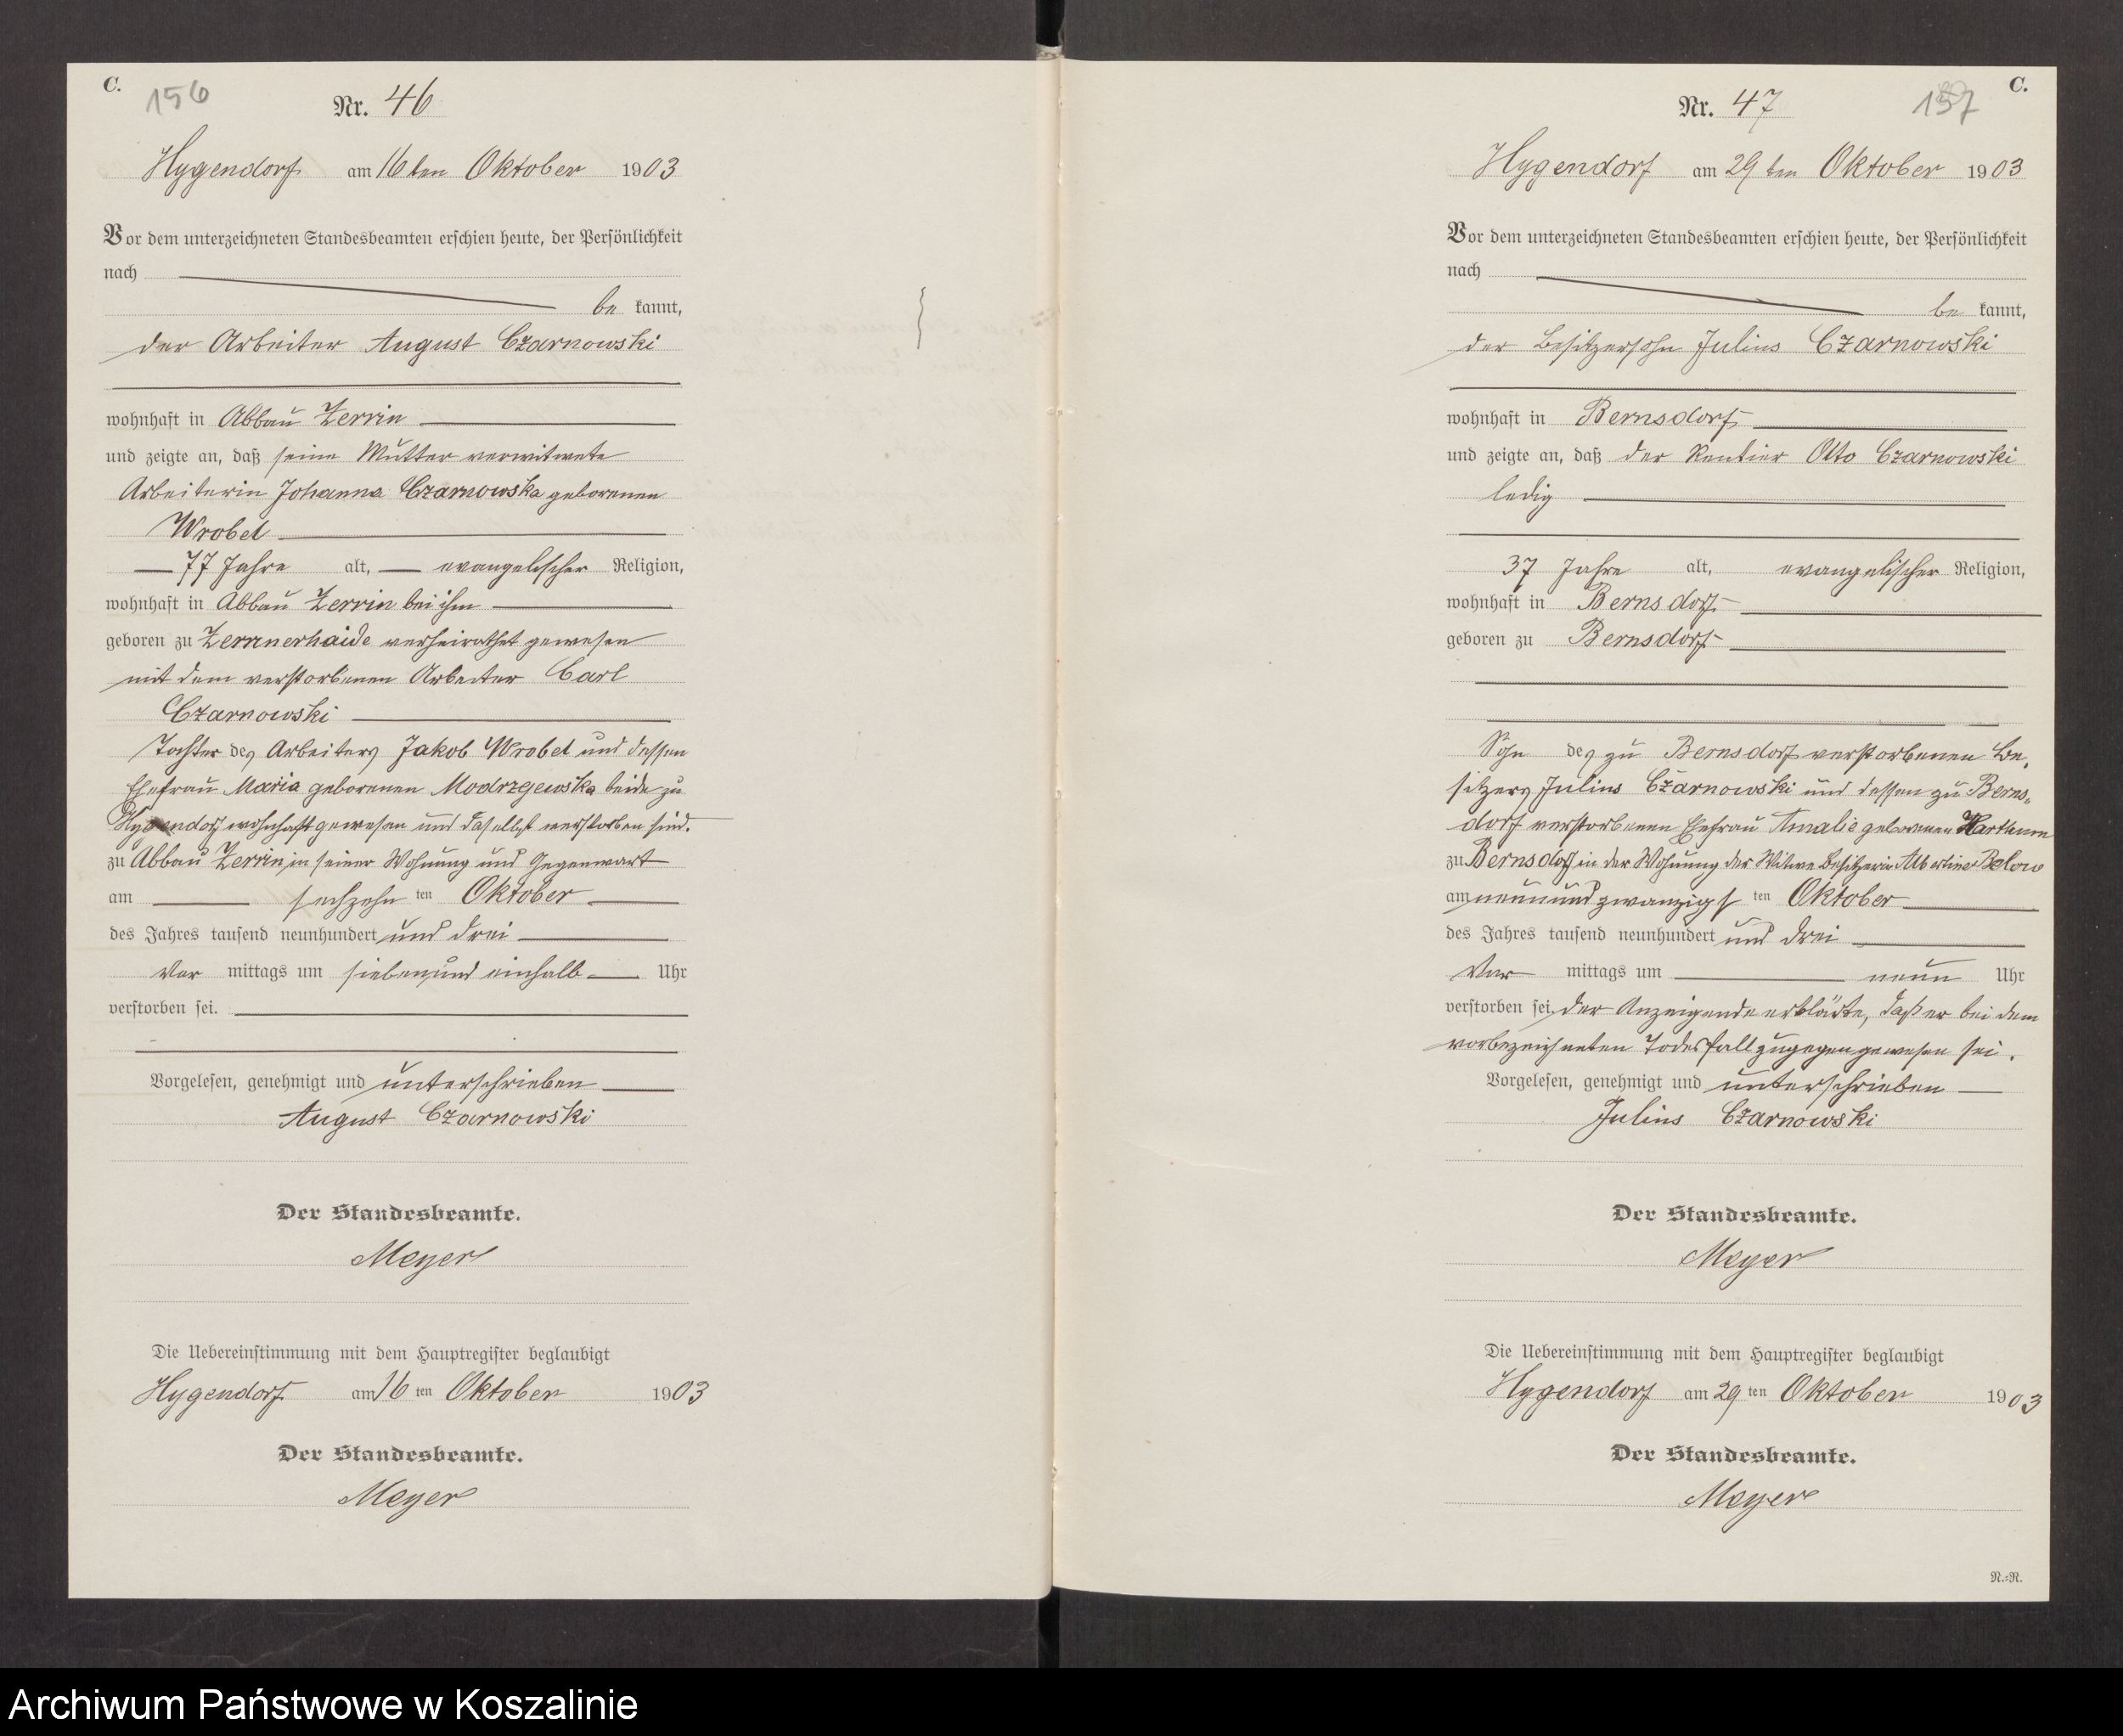 C.
156
Nr. 46
Hygendorf am 16ten Oktober 1903
Vor dem unterzeichneten Standesbeamten erschien heute, der Persönlichkeit
nach
be kannt,
der Arbeiter August Czarnowski
wohnhaft in Abbau Zerrin
und zeigte an, daß seine Mutter verwitwete
Arbeiterin Johanna Czarnowska geborenen
Wrobel
77 Jahre alt, evangelischer Religion,
wohnhaft in Abbau Zerrin bei ihm
geboren zu Zerrinerhaide verheirathet gewesen
mit dem verstorbenen Arbeiter Carl
Czarnowski
Tochter des Arbeiters Jakob Wrobel und dessen
Ehefrau Maria geborenen Modrzejewska beide zu
Hygendorf wohnhaft gewesen und daselbst verstorben sind.
zu Abbau Zerrin, in seiner Wohnung und Gegenwart
am sechzehn ten Oktober
des Jahres tausend neunhundert und drei
Vor mittags um sieben und einhalb Uhr
verstorben sei.
Vorgelesen, genehmigt und unterschrieben
August Czarnowski
Der Standesbeamte.
Meyer
Die Uebereinstimmung mit dem Hauptregister beglaubigt
Hygendorf am 16 ten Oktober 1903
Der Standesbeamte.
Meyer
C.
157
Nr. 47
Hygendorf am 29 ten Oktober 1903
Vor dem unterzeichneten Standesbeamten erschien heute, der Persönlichkeit
nach
be kannt,
der Besitzersohn Julius Czarnowski
wohnhaft in Bernsdorf
und zeigte an, daß der Rentier Otto Czarnowski
ledig
37 Jahre alt, evangelischer Religion,
wohnhaft in Bernsdorf
geboren zu Bernsdorf
Sohn des zu Bernsdorf verstorbenen Be-
sitzers Julius Czarnowski und dessen zu Berns-
dorf verstorbenen Ehefrau Amalie geborenen
zu Bernsdorf in der Wohnung der Witwe Besitzerin Albertine Below
am neunundzwanzigs ten Oktober
des Jahres tausend neunhundert und drei
Vor mittags um neun Uhr
verstorben sei, der Anzeigende erklärte, daß er bei dem
vorbezeichneten Todesfall zugegen gewesen sei.
Vorgelesen, genehmigt und unterschrieben
Julius Czarnowski
Der Standesbeamte.
Meyer
Die Uebereinstimmung mit dem Hauptregister beglaubigt
Hygendorf am 29 ten Oktober 1903
Der Standesbeamte.
Meyer
N.=N.
Archiwum Państwowe w Koszalinie